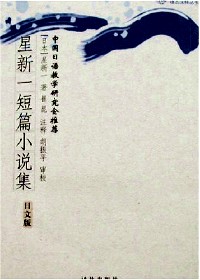 中国日语教学研究会推荐
[日本] 星新一 著 注释 胡振平 审校
星新一短篇小说集
日文版